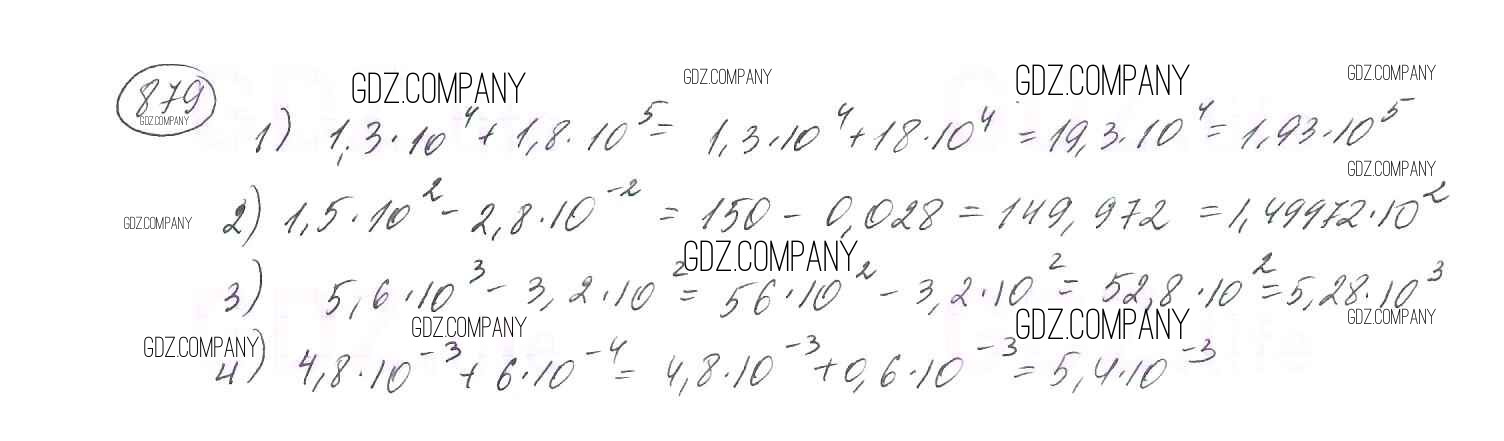 GDZ.COMPANY GDZ.COMPANY GDZ.COMPANY GDZ.COMPANY
879
GDZ.COMPANY
1) 1,3·10⁴ + 1,8·10⁵ = 1,3·10⁴ + 18·10⁴ = 19,3·10⁴ = 1,93·10⁵
GDZ.COMPANY
2) 1,5·10² - 2,8·10⁻² = 150 - 0,028 = 149,972 = 1,49972·10²
GDZ.COMPANY
GDZ.COMPANY
3) 5,6·10³ - 3,2·10² = 56·10² - 3,2·10² = 52,8·10² = 5,28·10³
GDZ.COMPANY GDZ.COMPANY GDZ.COMPANY
GDZ.COMPANY
4) 4,8·10⁻³ + 6·10⁻⁴ = 4,8·10⁻³ + 0,6·10⁻³ = 5,4·10⁻³